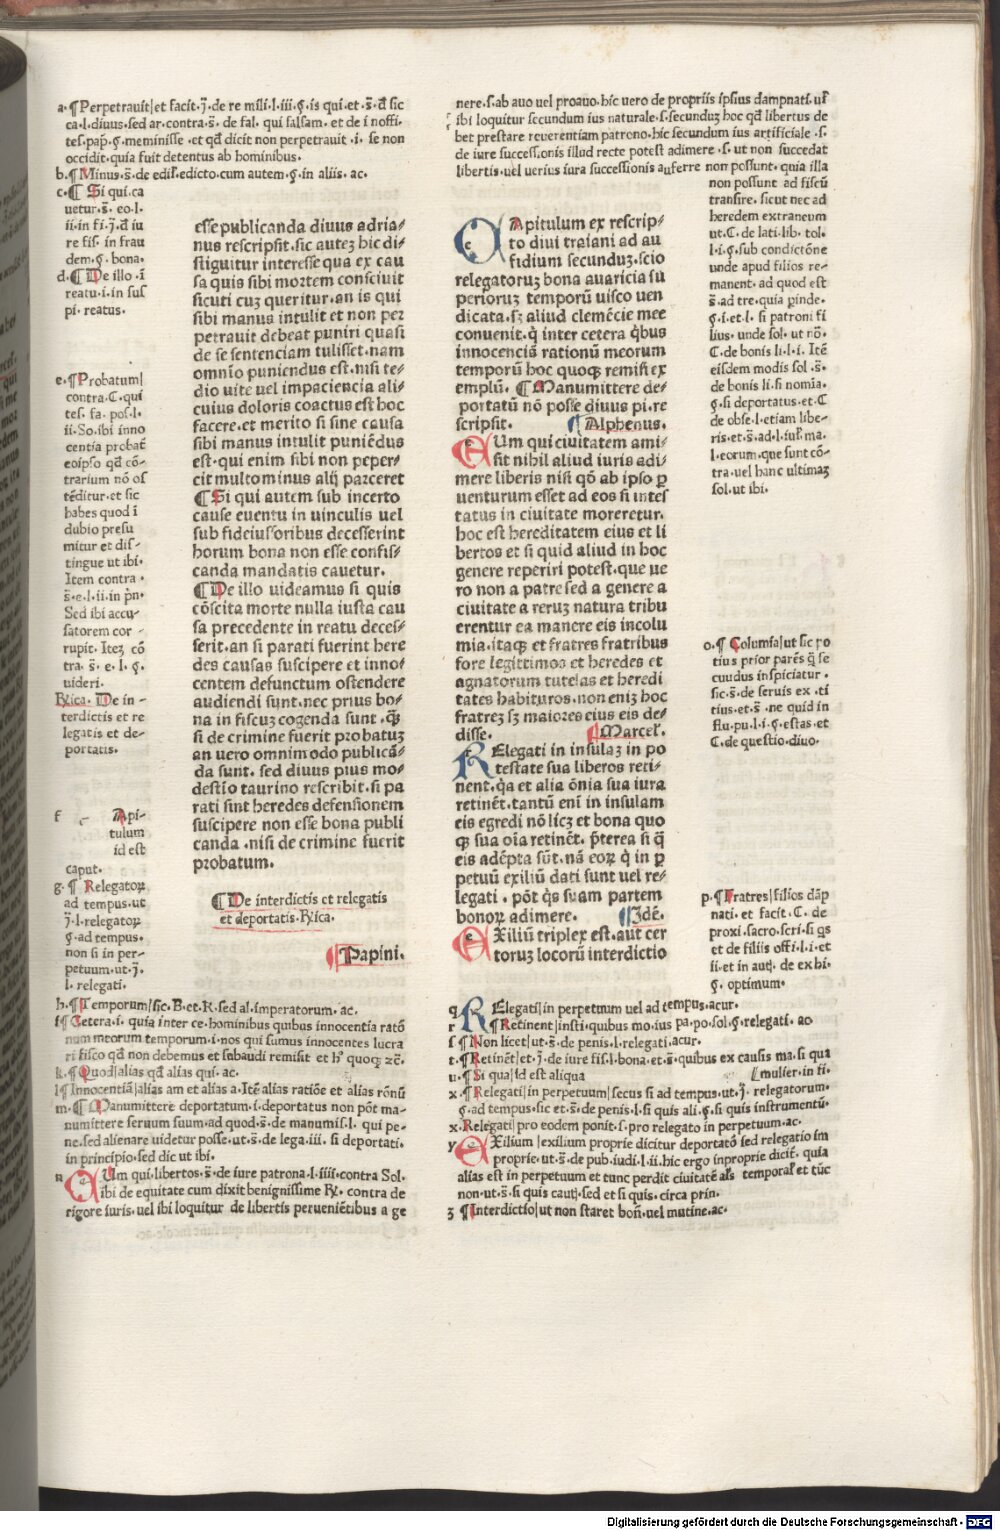 a·¶Perpetrauit|et facit.ȷ̄.de re mili.l.iii.ꝯ.is qui.et.s̄.ꝗ̄ sic
ca.l.diuus.sed ar.contra.s̄.de fal.qui falsam.et de i noffi.
tes.pap̄.ꝯ.meminisse.et qđ dicit non perpetrauit.i.se non
occidit.quia fuit detentus ab hominibus.
b.¶Minus.s̄.de edil̄.edicto.cum autem.ꝯ.in aliis.ac.
c.¶ Si qui.ca
uetur.s̄.eo.l.
ii.in fi.ȷ̄.đ iu
re fis.in frau
dem.ꝯ.bona.
d.¶De illo.ī
reatu.i.in sus
pi.reatus.
e.¶Probatum|
contra.C.qui
tes.fa.pos.l.
ii.So.ibi inno
centia probat̄
eoipso qđ cō-
trarium nō os
tēditur.et sic
habes quod ī
dubio presu
mitur et dis-
tingue ut ibi.
Item contra.
s̄.e.l.ii.in p̄n.
Sed ibi accu-
satorem cor-
rupit.Iteȝ cō
tra.s̄.e.l.ꝯ.
uideri.
R̄ica.De in-
terdictis et re
legatis et de-
portatis.
f Api-
tulum
id est
caput.
g.¶ Relegatoꝝ
ad tempus.ut
ȷ̄.l.relegatoꝝ
ꝯ.ad tempus.
non si in per-
petuum.ut.ȷ̄.
l.relegati.
esse publicanda diuus adria-
nus rescripsit.sic auteȝ hic di-
stiguitur interesse qua ex cau
sa quis sibi mortem consciuit
sicuti cuȝ queritur.an is qui
sibi manus intulit et non per
petrauit debeat puniri quasi
de se sentenciam tulisset.nam
omnīo puniendus est.nisi te-
dio uite uel impaciencia ali-
cuius doloris coactus est hoc
facere.et merito si sine causa
sibi manus intulit puniēdus
est.qui enim sibi non peper-
cit multominus alij parceret
¶Si qui autem sub incerto
cause euentu in uinculis uel
sub fideiussoribus decesserint
horum bona non esse confis-
canda mandatis cauetur.
¶De illo uideamus si quis
cōscita morte nulla iusta cau
sa precedente in reatu deces-
serit.an si parati fuerint here
des causas suscipere et inno-
centem defunctum ostendere
audiendi sunt.nec prius bo-
na in fiscuȝ cogenda sunt.ꝙ̄
si de crimine fuerit probatuȝ
an uero omnimodo publicā-
da sunt.sed diuus pius mo-
destio taurino rescribit.si pa
rati sint heredes defensionem
suscipere non esse bona publi
canda.nisi de crimine fuerit
probatum.
¶De interdictis et relegatis
et deportatis.R̄ica.
¶Papini.
h.¶Temporum|sic.B.et.R.sed al.imperatorum.ac.
i¶Cetera.i.quia inter ce.hominibus quibus innocentia ratō
num meorum temporum.i.nos qui sumus innocentes lucra
ri fisco qđ non debemus et subaudi remisit et h' quoqȝ zc̄.
k.¶Quod|alias qđ alias qui.ac.
l¶Innocentiā|alias am et alias a.Itē alias ratiōe et alias rōnū
m.¶Manumittere deportatum.i.deportatus non pōt ma-
numittere seruum suum.ad quod.s̄.de manumis.l.qui pe-
ne.sed alienare uidetur posse.ut.s̄.de lega.iii.si deportati.
in principio.sed dic ut ibi.
n CUm qui.libertos.s̄.de iure patrona.l.iiii.contra Sol.
ibi de equitate cum dixit benignissime R̄.contra de
rigore iuris.uel ibi loquitur de libertis perueniētibus a ge
nere.s.ab auo uel proauo.hic uero de propriis ipsius dampnati.ul̄
ibi loquitur secundum ius naturale.s.secunduȝ hoc qđ libertus de
bet prestare reuerentiam patrono.hic secundum ius artificiale.s.
de iure successionis illud recte potest adimere.s.ut non succedat
libertis.uel uerius iura successionis auferre non possunt.quia illa
non possunt ad fiscū
transire.sicut nec ad
heredem extraneum
ut.C.de lati.lib.tol.
l.i.ꝯ.sub condictōne
unde apud filios re-
manent.ad quod est
s̄.ad tre.quia ꝑinde.
ꝯ.i.et.l.si patroni fi
lius.unde sol.ut nō.
C.de bonis li.l.i.Itē
eisdem modis sol.s̄.
de bonis li.si nomīa.
ꝯ.si deportatus.et.C
de obse.l.etiam libe-
ris.et.s̄.ad.l.iul̄.ma.
l.eorum.que sunt cō-
tra.uel hanc ultimaȝ
sol.ut ibi.
e CApitulum ex rescrip-
to diui traiani ad au
fidium secunduȝ.scio
relegatoruȝ bona auaricia su
perioruȝ temporū uisco uen
dicata.sȝ aliud clemēcie mee
conuenit.ꝗ inter cetera ꝗbus
innocenciā rationū meorum
temporū hoc quoqȝ remisi ex
emplū.¶Manumittere de-
portatū nō posse diuus pi.re
scripsit. ¶Alphenus.
EUm qui ciuitatem ami-
sit nihil aliud iuris adi-
mere liberis nisi qō ab ipso ꝑ
uenturum esset ad eos si intes
tatus in ciuitate moreretur.
hoc est hereditatem eius et li
bertos et si quid aliud in hoc
genere reperiri potest.que ue
ro non a patre sed a genere a
ciuitate a reruȝ natura tribu
erentur ea manere eis incolu
mia.itaqȝ et fratres fratribus
fore legittimos et heredes et
agnatorum tutelas et heredi
tates habituros.non eniȝ hoc
fratreȝ sȝ maiores eius eis de-
disse. ¶Marcel.
RElegati in insulaȝ in po
testate sua liberos reti-
nent.ꝗa et alia ōnia sua iura
retinēt.tantū enī in insulam
eis egredi nō licȝ et bona quo
qȝ sua oīa retinēt.p̄terea si ꝗ̄
eis adēpta sūt.nā eoꝝ ꝗ in ꝑ
petuū exiliū dati sunt uel re-
legati.pōt ꝗs suam partem
bonoꝝ adimere. ¶Idē.
EXiliū triplex est.aut cer
toruȝ locorū interdictio
o.¶ Columīa|ut sic ro
tius prior parēs ꝗ̄ se
cuudus inspiciatur.
sic.s̄.de seruis ex.ti
tius.et.s̄.ne quid in
flu.pu.l.i.ꝯ.estas.et
C.de questio.diuo.
p.¶Fratres|filios dāp
nati.et facit.C.de
proxi.sacro.scri.si ꝗs
et de filiis offi.l.i.et
ii.et in autȝ.de exhi-
ꝯ.optimum.
q RElegati|in perpetuum uel ad tempus.acur.
r ¶Retinent|insti.quibus mo.ius pa.po.sol.ꝯ.relegati.ac
s ¶Non licet|ut.s̄.de penis.l.relegati.acur.
t.¶Retinēt|et.ȷ̄.de iure fis.l.bona.et.s̄.quibus ex causis ma.si qua
u.¶Si qua|id est aliqua [mulier.in fi.
x.¶Relegati|in perpetuum|secus si ad tempus.ut.ȷ̄.relegatorum.
ꝯ.ad tempus.sic et.s̄.de penis.l.si quis ali.ꝯ.si quis instrumentū.
x.Relegati|pro eodem ponit.s.pro relegato in perpetuum.ac.
y EXilium|exilium proprie dicitur deportatō sed relegatio im
proprie.ut.s̄.de pub.iudi.l.ii.hic ergo inproprie dicit̄.quia
alias est in perpetuum et tunc perdit ciuitatē als temporal̄ et tūc
non.ut.s̄.si quis cautȝ.sed et si quis.circa prin.
ȝ ¶Interdictio|ut non staret bon̄.uel mutine.ac.
Digitalisierung gefördert durch die Deutsche Forschungsgemeinschaft - DFG